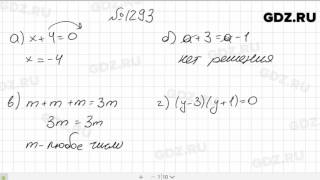 GDZ.RU
№1293
а) x + 4 = 0
x = -4
б) a + 3 = a - 1
нет решения
в) m + m + m = 3m
3m = 3m
m - любое число
г) (y-3)(y+1)=0